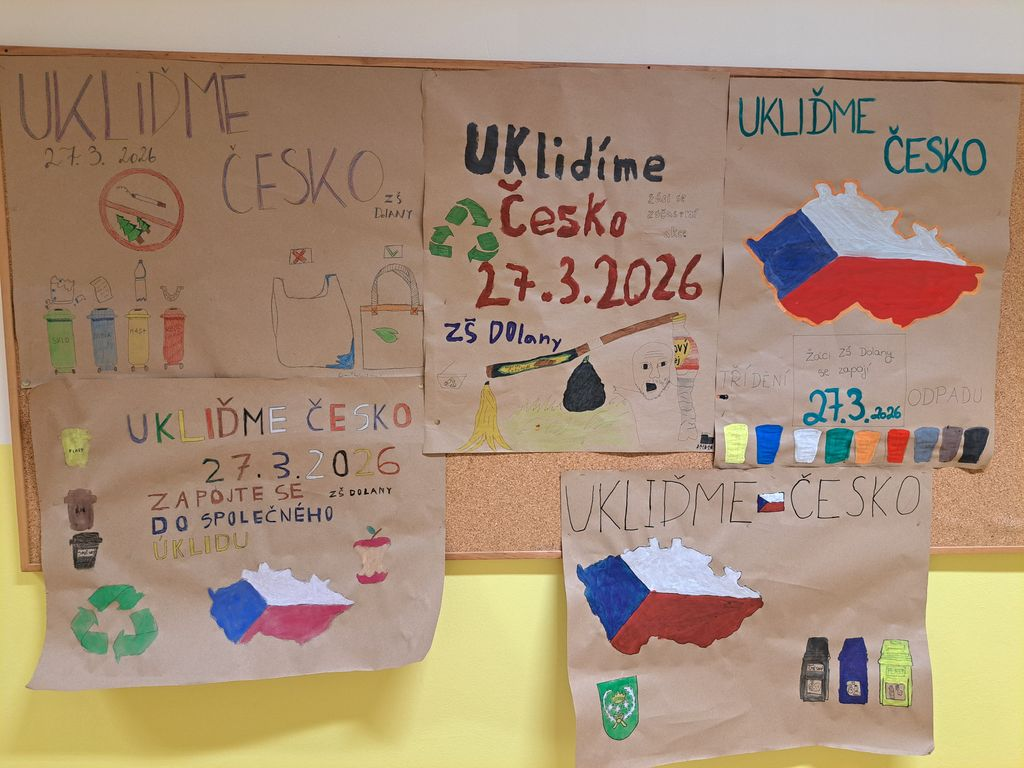 UKLIĎME
27.3. 2026
ČESKO
ZŠ
DOLANY
SKLO
PAPÍR
PLAST
UKlidíme
Česko
žáci se
zúčastní
akce
27.3.2026
ZŠ DOlany
UKLIĎME
ČESKO
Žáci ZŠ Dolany
se zapojí
27.3. 2026
TŘÍDENÍ
ODPADU
UKLIĎME ČESKO
27.3.2026
ZAPOJTE SE
ZŠ DOLANY
DO SPOLEČNÉHO
ÚKLIDU
PLAST
UKLIĎME ČESKO